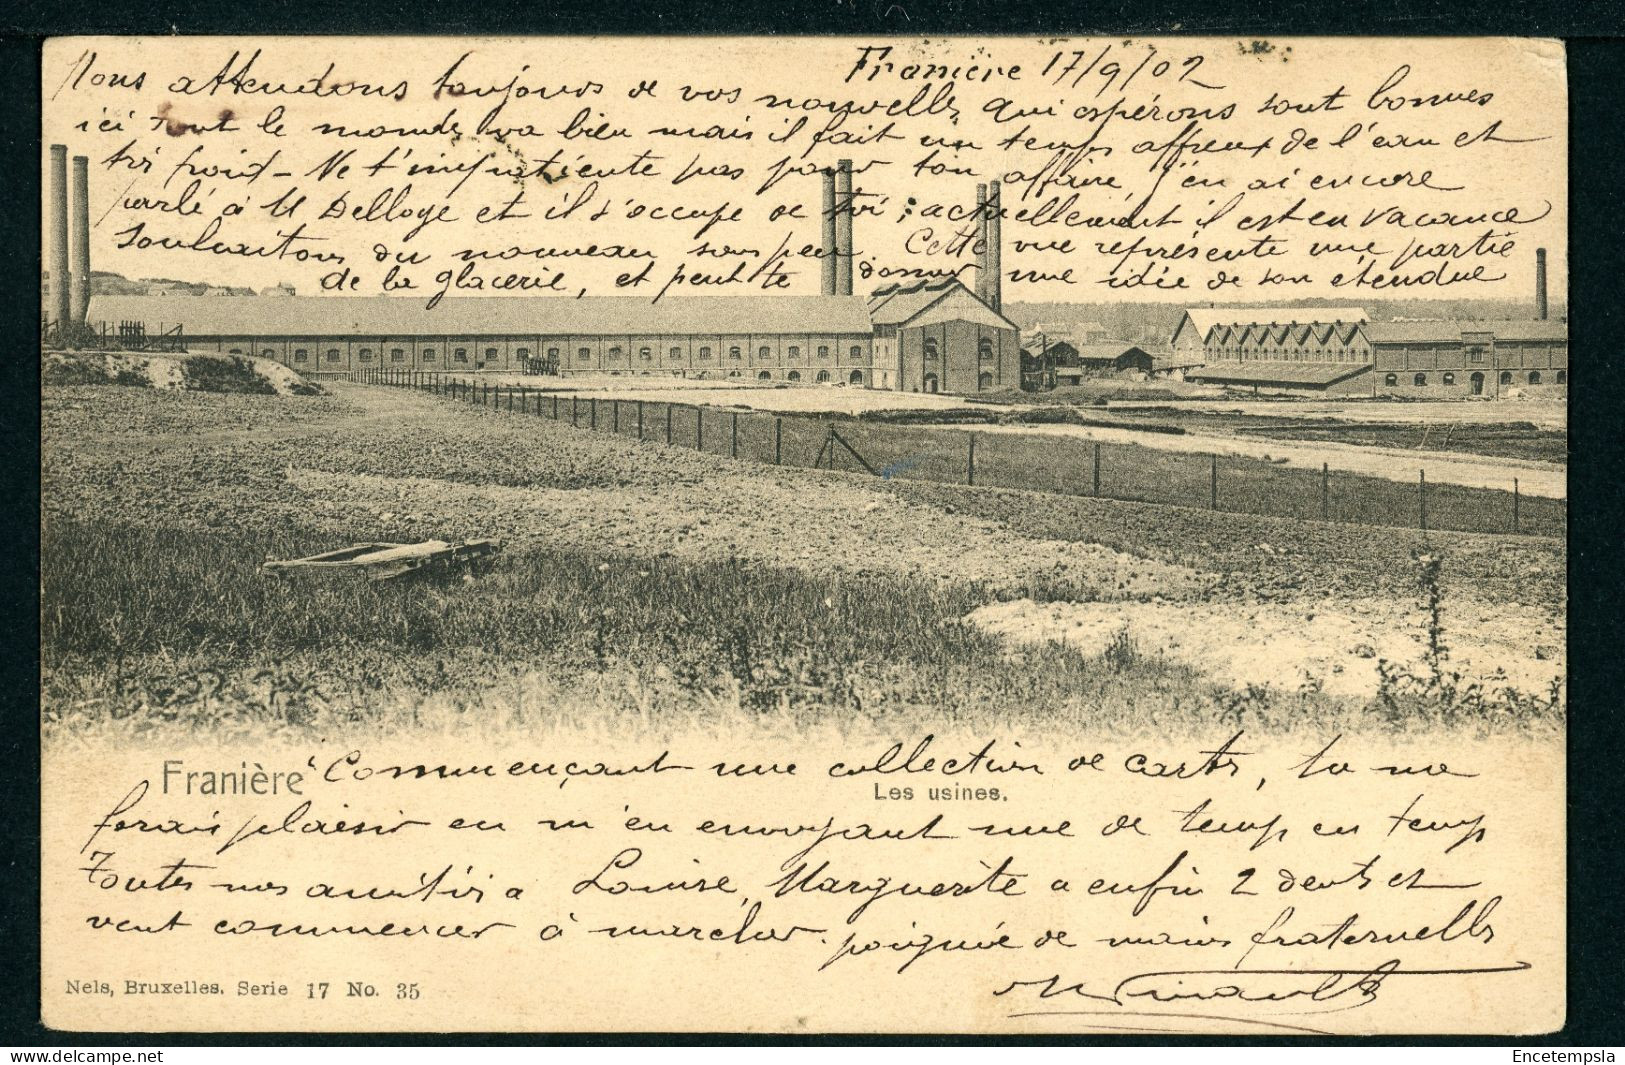 Franière 17/9/02
Nous attendons toujours de vos nouvelles, qui espérons sont bonnes
ici tout le monde va bien mais il fait un temps affreux de l'eau et
froid - Ne t'impatiente pas pour ton affaire, j'en ai encore
parlé à M Delloye et il s'occupe de toi ; actuellement il est en vacance
du nouveau sous peu. Cette vue représente une partie
de la glacerie, et peut te donner une idée de son étendue
Franière
Commençant une collection de cartes, tu me
Les usines.
ferais plaisir en m'en envoyant une de temp en temp
Toutes nos amitiés a Louise, Marguerite a enfin 2 dents et
veut commencer à marcher. poignée de mains fraternelles
Nels, Bruxelles. Serie 17 No. 35
Encetempsla